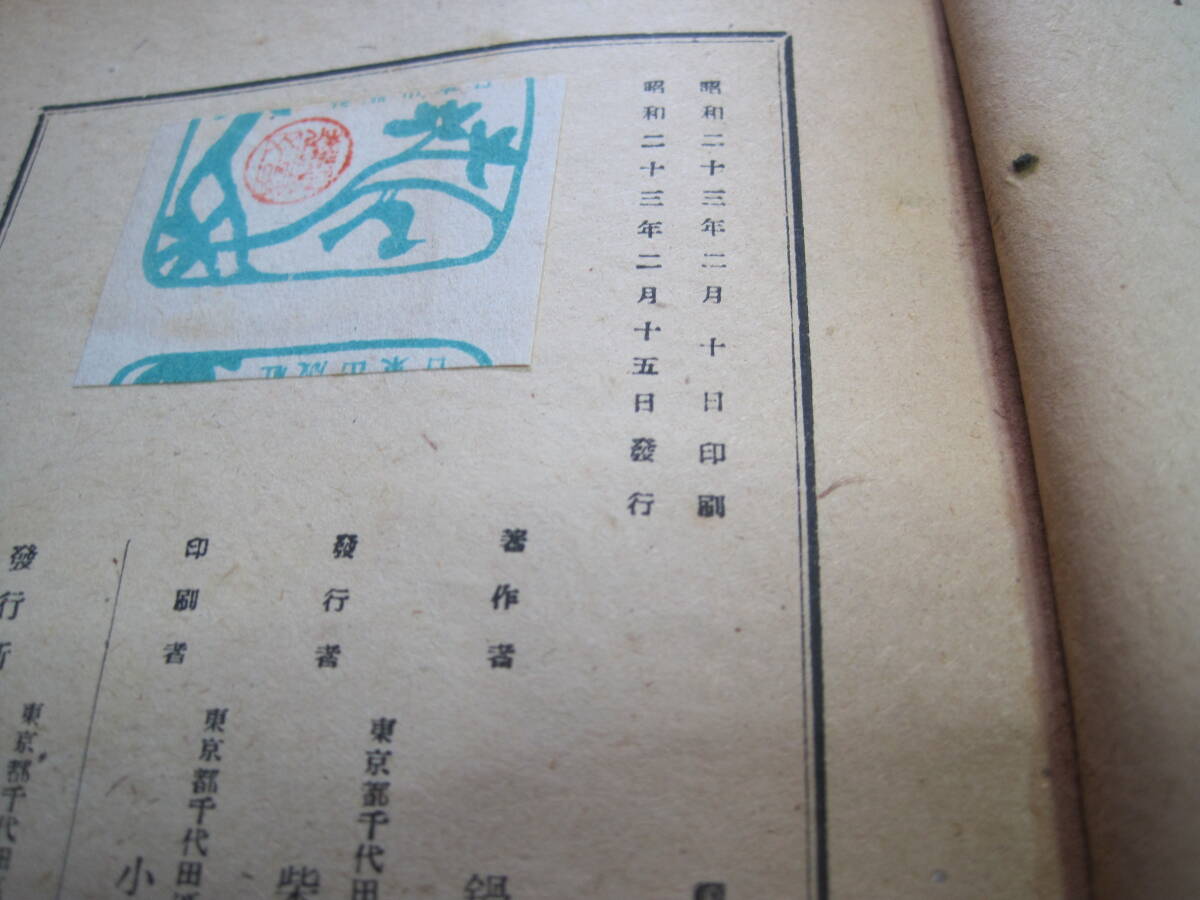 昭和二十三年二月十日印刷
昭和二十三年二月十五日發行
著作者
鍋
發行者
東京都千代田
柴
印刷者
東京都千代田
小
發行所
東京都千代田
日東出版社